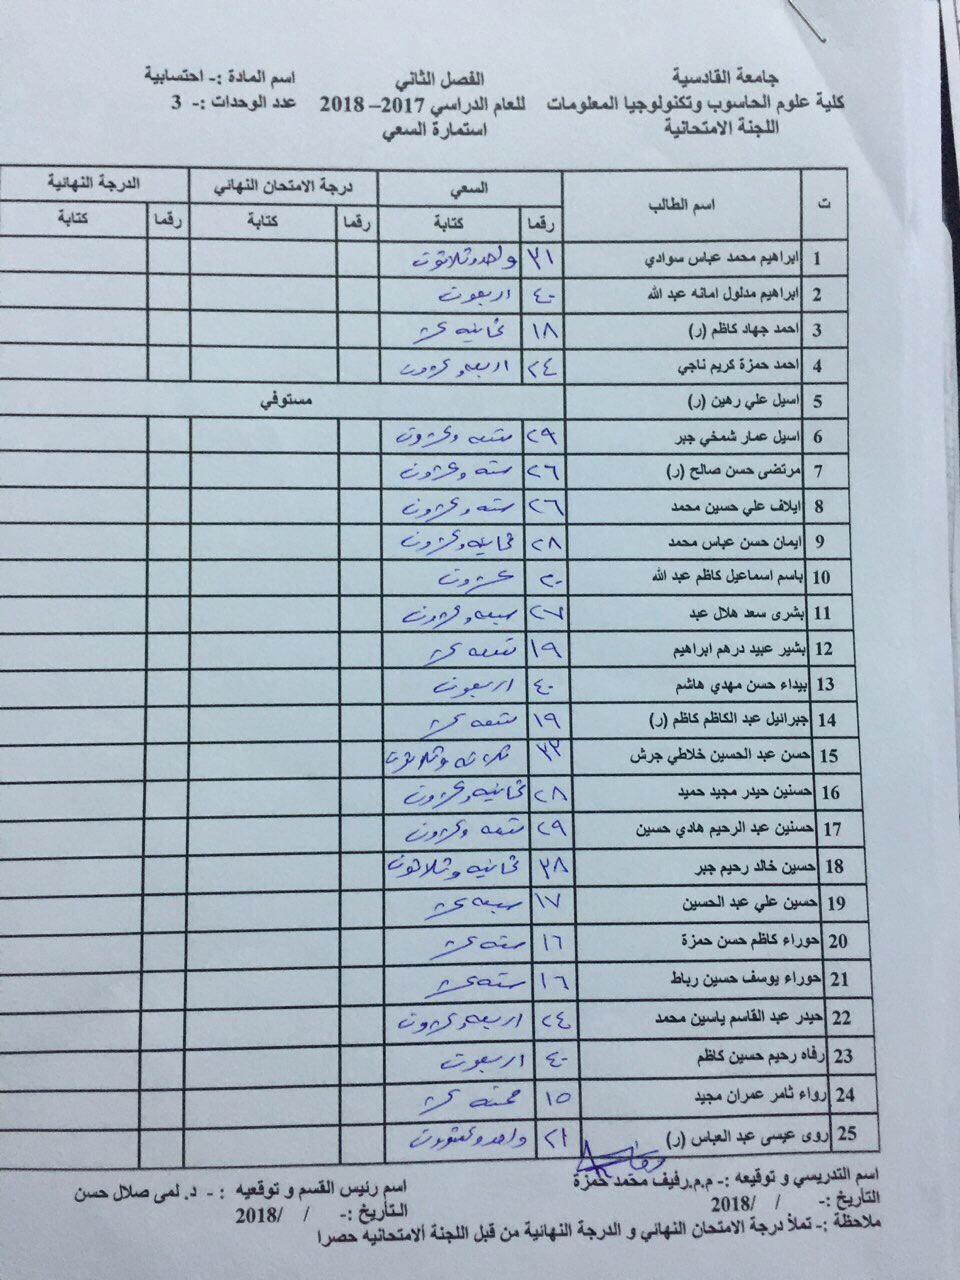 جامعة القادسية
كلية علوم الحاسوب وتكنولوجيا المعلومات
اللجنة الامتحانية
الفصل الثاني
للعام الدراسي 2017– 2018
استمارة السعي
اسم المادة :- احتسابية
عدد الوحدات :- 3
ت اسم الطالب السعي درجة الامتحان النهائي الدرجة النهائية
رقما كتابة رقما كتابة رقما كتابة
1 ابراهيم محمد عباس سوادي ٣١ واحد وثلاثون
2 ابراهيم مدلول امانه عبد الله ٤٠ اربعون
3 احمد جهاد كاظم (ر) ١٨ ثمانيه عشر
4 احمد حمزة كريم ناجي ٢٤ اربعه وعشرون
5 اسيل علي رهين (ر) مستوفي
6 اسيل عمار شمخي جبر ٢٩ تسعه وعشرون
7 مرتضى حسن صالح (ر) ٢٦ سته وعشرون
8 ايلاف علي حسين محمد ٢٦ سته وعشرون
9 ايمان حسن عباس محمد ٢٨ ثمانيه وعشرون
10 باسم اسماعيل كاظم عبد الله ٢٠ عشرون
11 بشرى سعد هلال عبد ٢٧ سبعه وعشرون
12 بشير عبيد درهم ابراهيم ١٩ تسعه عشر
13 بيداء حسن مهدي هاشم ٤٠ اربعون
14 جبرائيل عبد الكاظم كاظم (ر) ١٩ تسعه عشر
15 حسن عبد الحسين خلاطي جرش ٣٣ ثلاثه وثلاثون
16 حسنين حيدر مجيد حميد ٢٨ ثمانيه وعشرون
17 حسنين عبد الرحيم هادي حسين ٢٩ تسعه وعشرون
18 حسين خالد رحيم جبر ٣٨ ثمانيه وثلاثون
19 حسين علي عبد الحسين ١٧ سبعه عشر
20 حوراء كاظم حسن حمزة ١٦ سته عشر
21 حوراء يوسف حسين رباط ١٦ سته عشر
22 حيدر عبد القاسم ياسين محمد ٢٤ اربعه وعشرون
23 رفاه رحيم حسين كاظم ٤٠ اربعون
24 رواء ثامر عمران مجيد ١٥ خمسه عشر
25 روى عيسى عبد العباس (ر) ٢١ واحد وعشرون
اسم التدريسي و توقيعه :- م.م.رفيف محمد حمزة
التأريخ :- / /2018
اسم رئيس القسم و توقعيه :- د. لمى صلال حسن
التأريخ :- / /2018
ملاحظة :- تملأ درجة الامتحان النهائي و الدرجة النهائية من قبل اللجنة ألامتحانيه حصرا